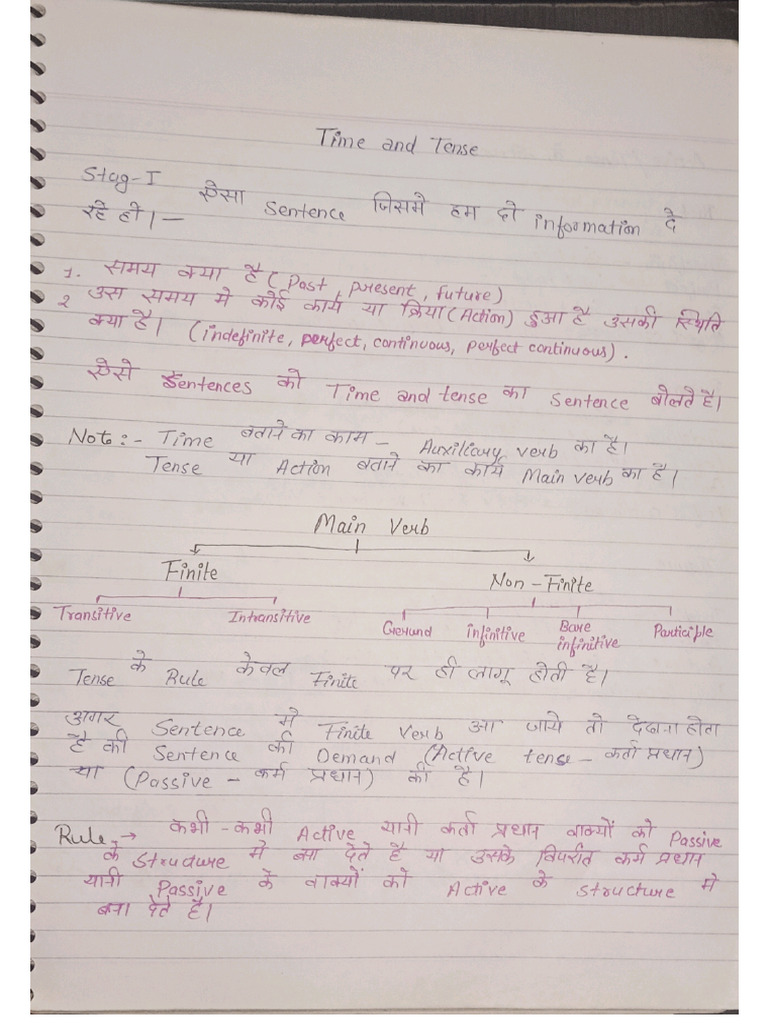 Time and Tense
Stag-I ऐसा Sentence जिसमे हम दो information दे
रहे हो।—
1. समय क्या है (Past, present, future)
2 उस समय मे कोई कार्य या क्रिया (Action) हुआ है उसकी स्थिति
क्या है। (indefinite, perfect, continuous, perfect continuous).
ऐसे Sentences को Time and tense का Sentence बोलते है।
Note:- Time बताने का काम – Auxiliary verb का है।
Tense या Action बताने का कार्य Main verb का है।
Main Verb
Finite Non-Finite
Transitive Intransitive Gerund infinitive Bare infinitive Participle
Tense के Rule केवल Finite पर ही लागू होती है।
अगर Sentence मे Finite Verb आ जाये तो देखना होता
है की Sentence की Demand (Active tense – कर्ता प्रधान)
या (Passive – कर्म प्रधान) की है।
Rule → कभी-कभी Active यानी कर्ता प्रधान वाक्यों को Passive
के Structure मे बना देते है या उसके विपरीत कर्म प्रधान
यानी Passive के वाक्यों को Active के structure मे
बना देते है।